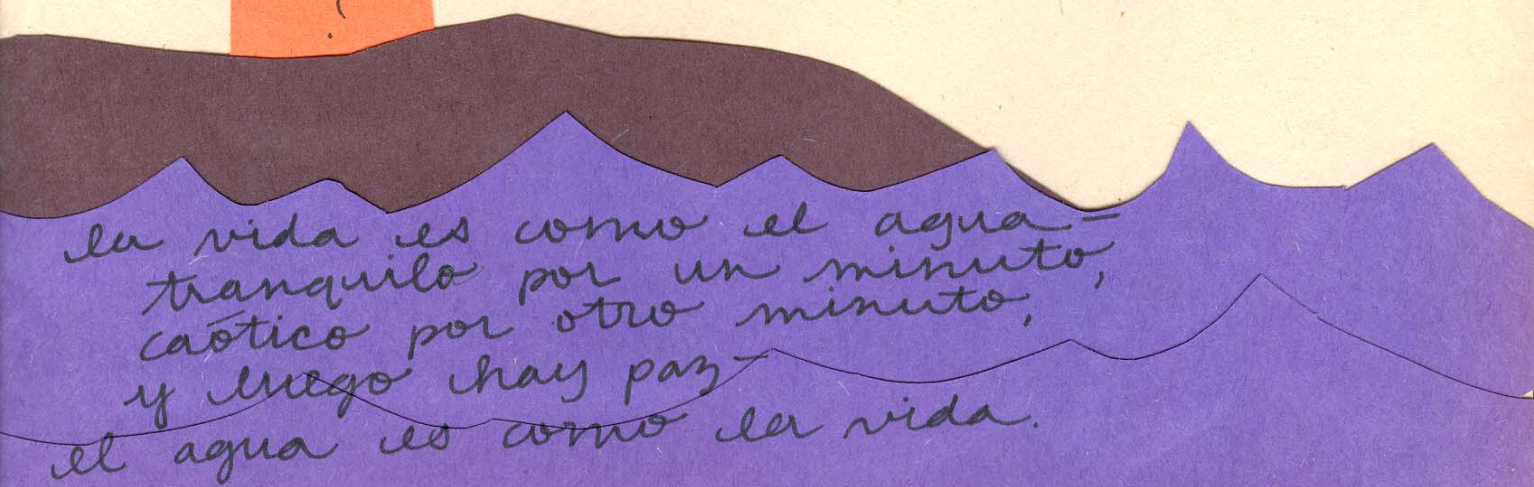 la vida es como el agua—
tranquilo por un minuto,
caótico por otro minuto,
y luego hay paz—
el agua es como la vida.